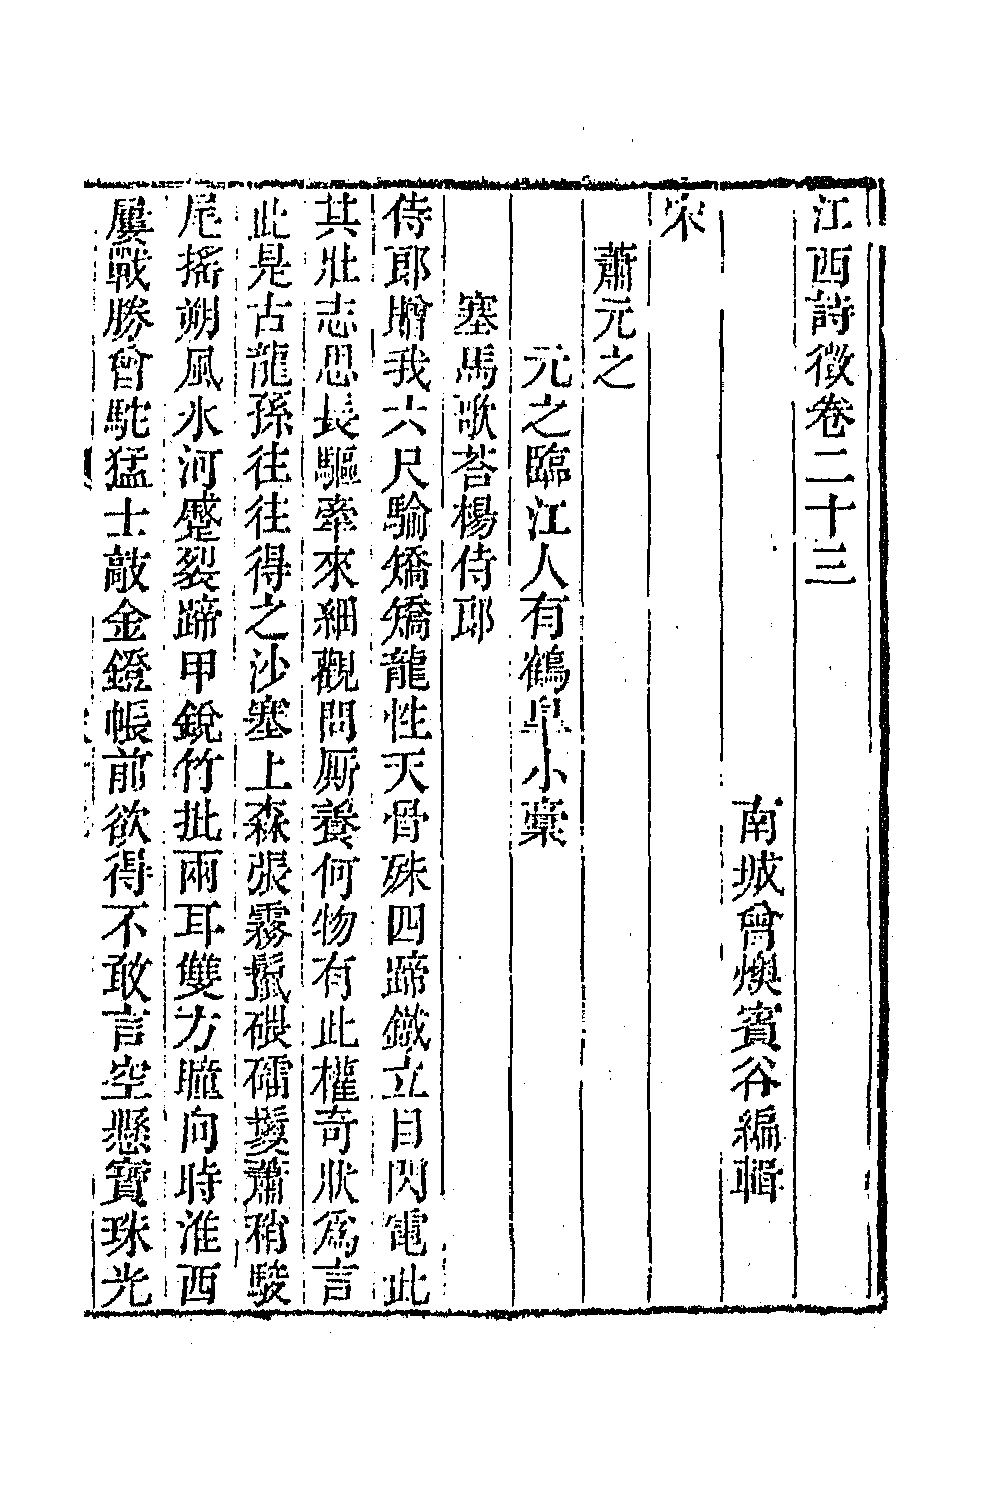 江西詩徵卷二十三
南城曾燠賓谷編輯
宋
蕭元之
元之臨江人有鶴皐小稾
塞馬歌荅楊侍郎
侍郎贈我六尺騟矯矯龍性天骨殊四蹄鐵立目閃電此
其壯志思長驅牽來細觀問厮養何物有此權奇狀爲言
此是古龍孫往往得之沙塞上森張霧鬛磈礌鬉蕭稍駿
尾搖朔風氷河蹙裂蹄甲銳竹批兩耳雙方瞳向時淮西
屢戰勝曾馱猛士敲金鐙帳前欲得不敢言空懸寶珠光